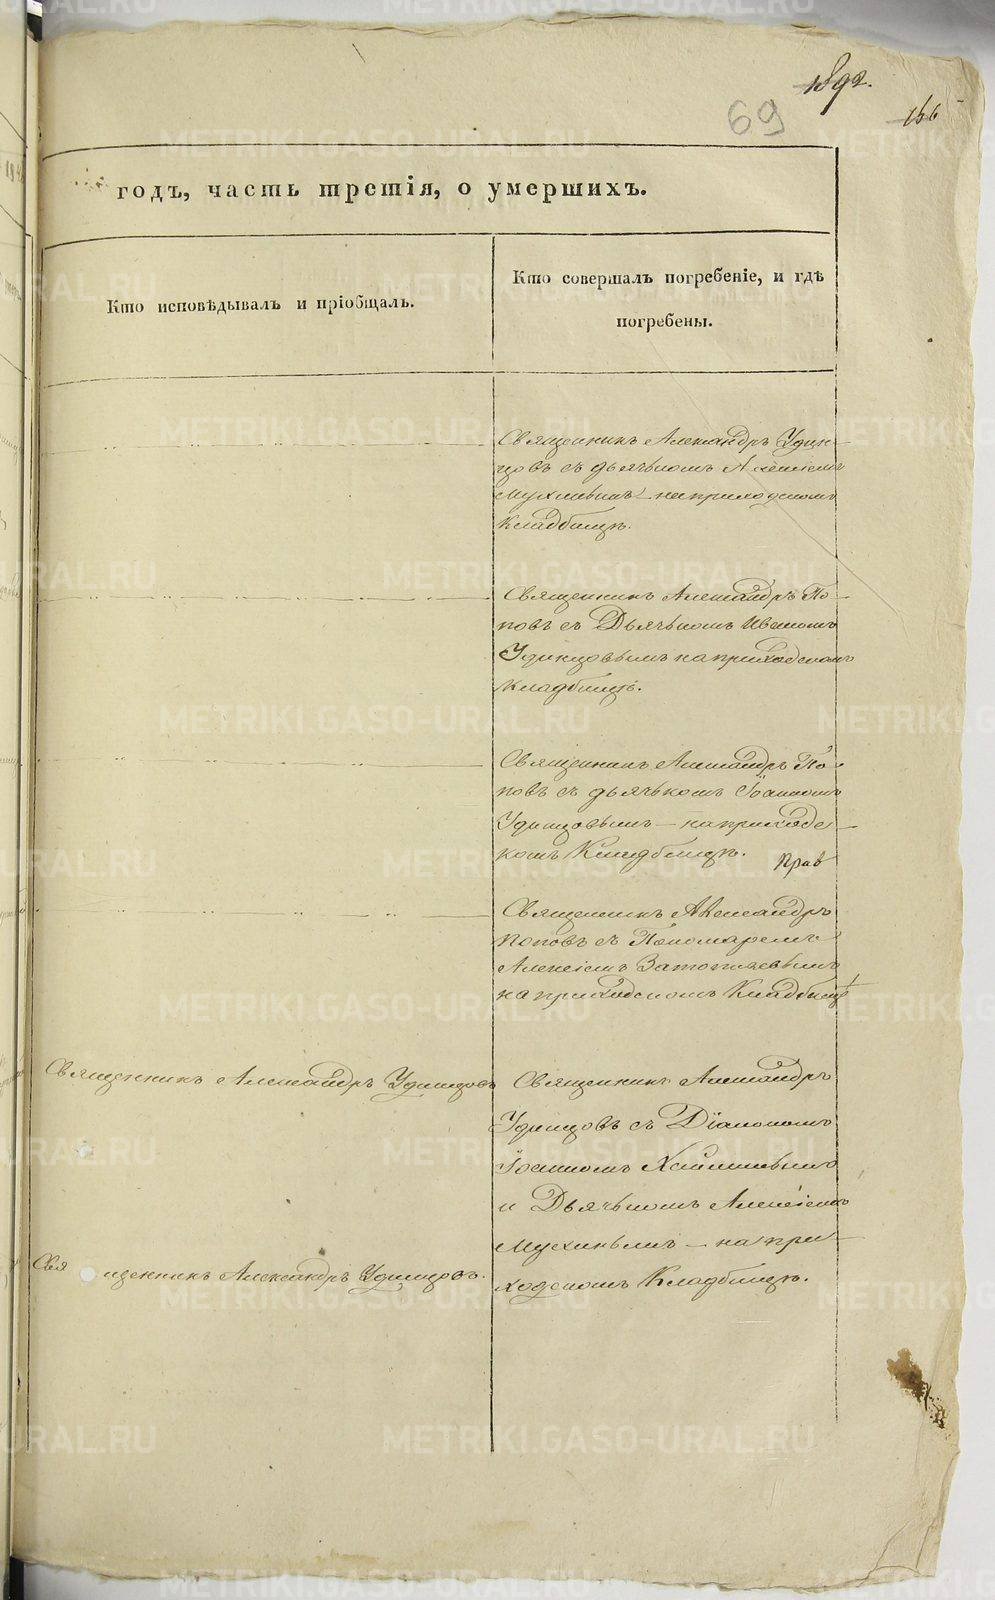 1892.
69
156
годъ, часть третія, о умершихъ.
Кто исповѣдывалъ и пріобщалъ.
Кто совершалъ погребеніе, и гдѣ
погребены.
Священникъ Александръ Удин-
цовъ съ дьячкомъ Алексіемъ
Мухинымъ – на приходскомъ
Кладбищѣ.
Священникъ Александръ По-
повъ съ Дьячкомъ Иваномъ
Удинцовымъ на приходскомъ
кладбищѣ.
Священникъ Александръ По-
повъ съ дьячькомъ Іоанномъ
Удинцовымъ – на приходс-
комъ Кладбищѣ. Прав
Священникъ Александръ
Поповъ съ Пономаремъ
Алексіемъ
на приходскомъ Кладбищѣ
Священникъ Александръ Удинцовъ
Священникъ Александръ
Удинцовъ съ Діакономъ
Іоанномъ
и Дьячкомъ Алексіемъ
Мухинымъ – на при-
ходскомъ Кладбищѣ.
Священникъ Александръ Удинцовъ.
METRIKI.GASO-URAL.RU